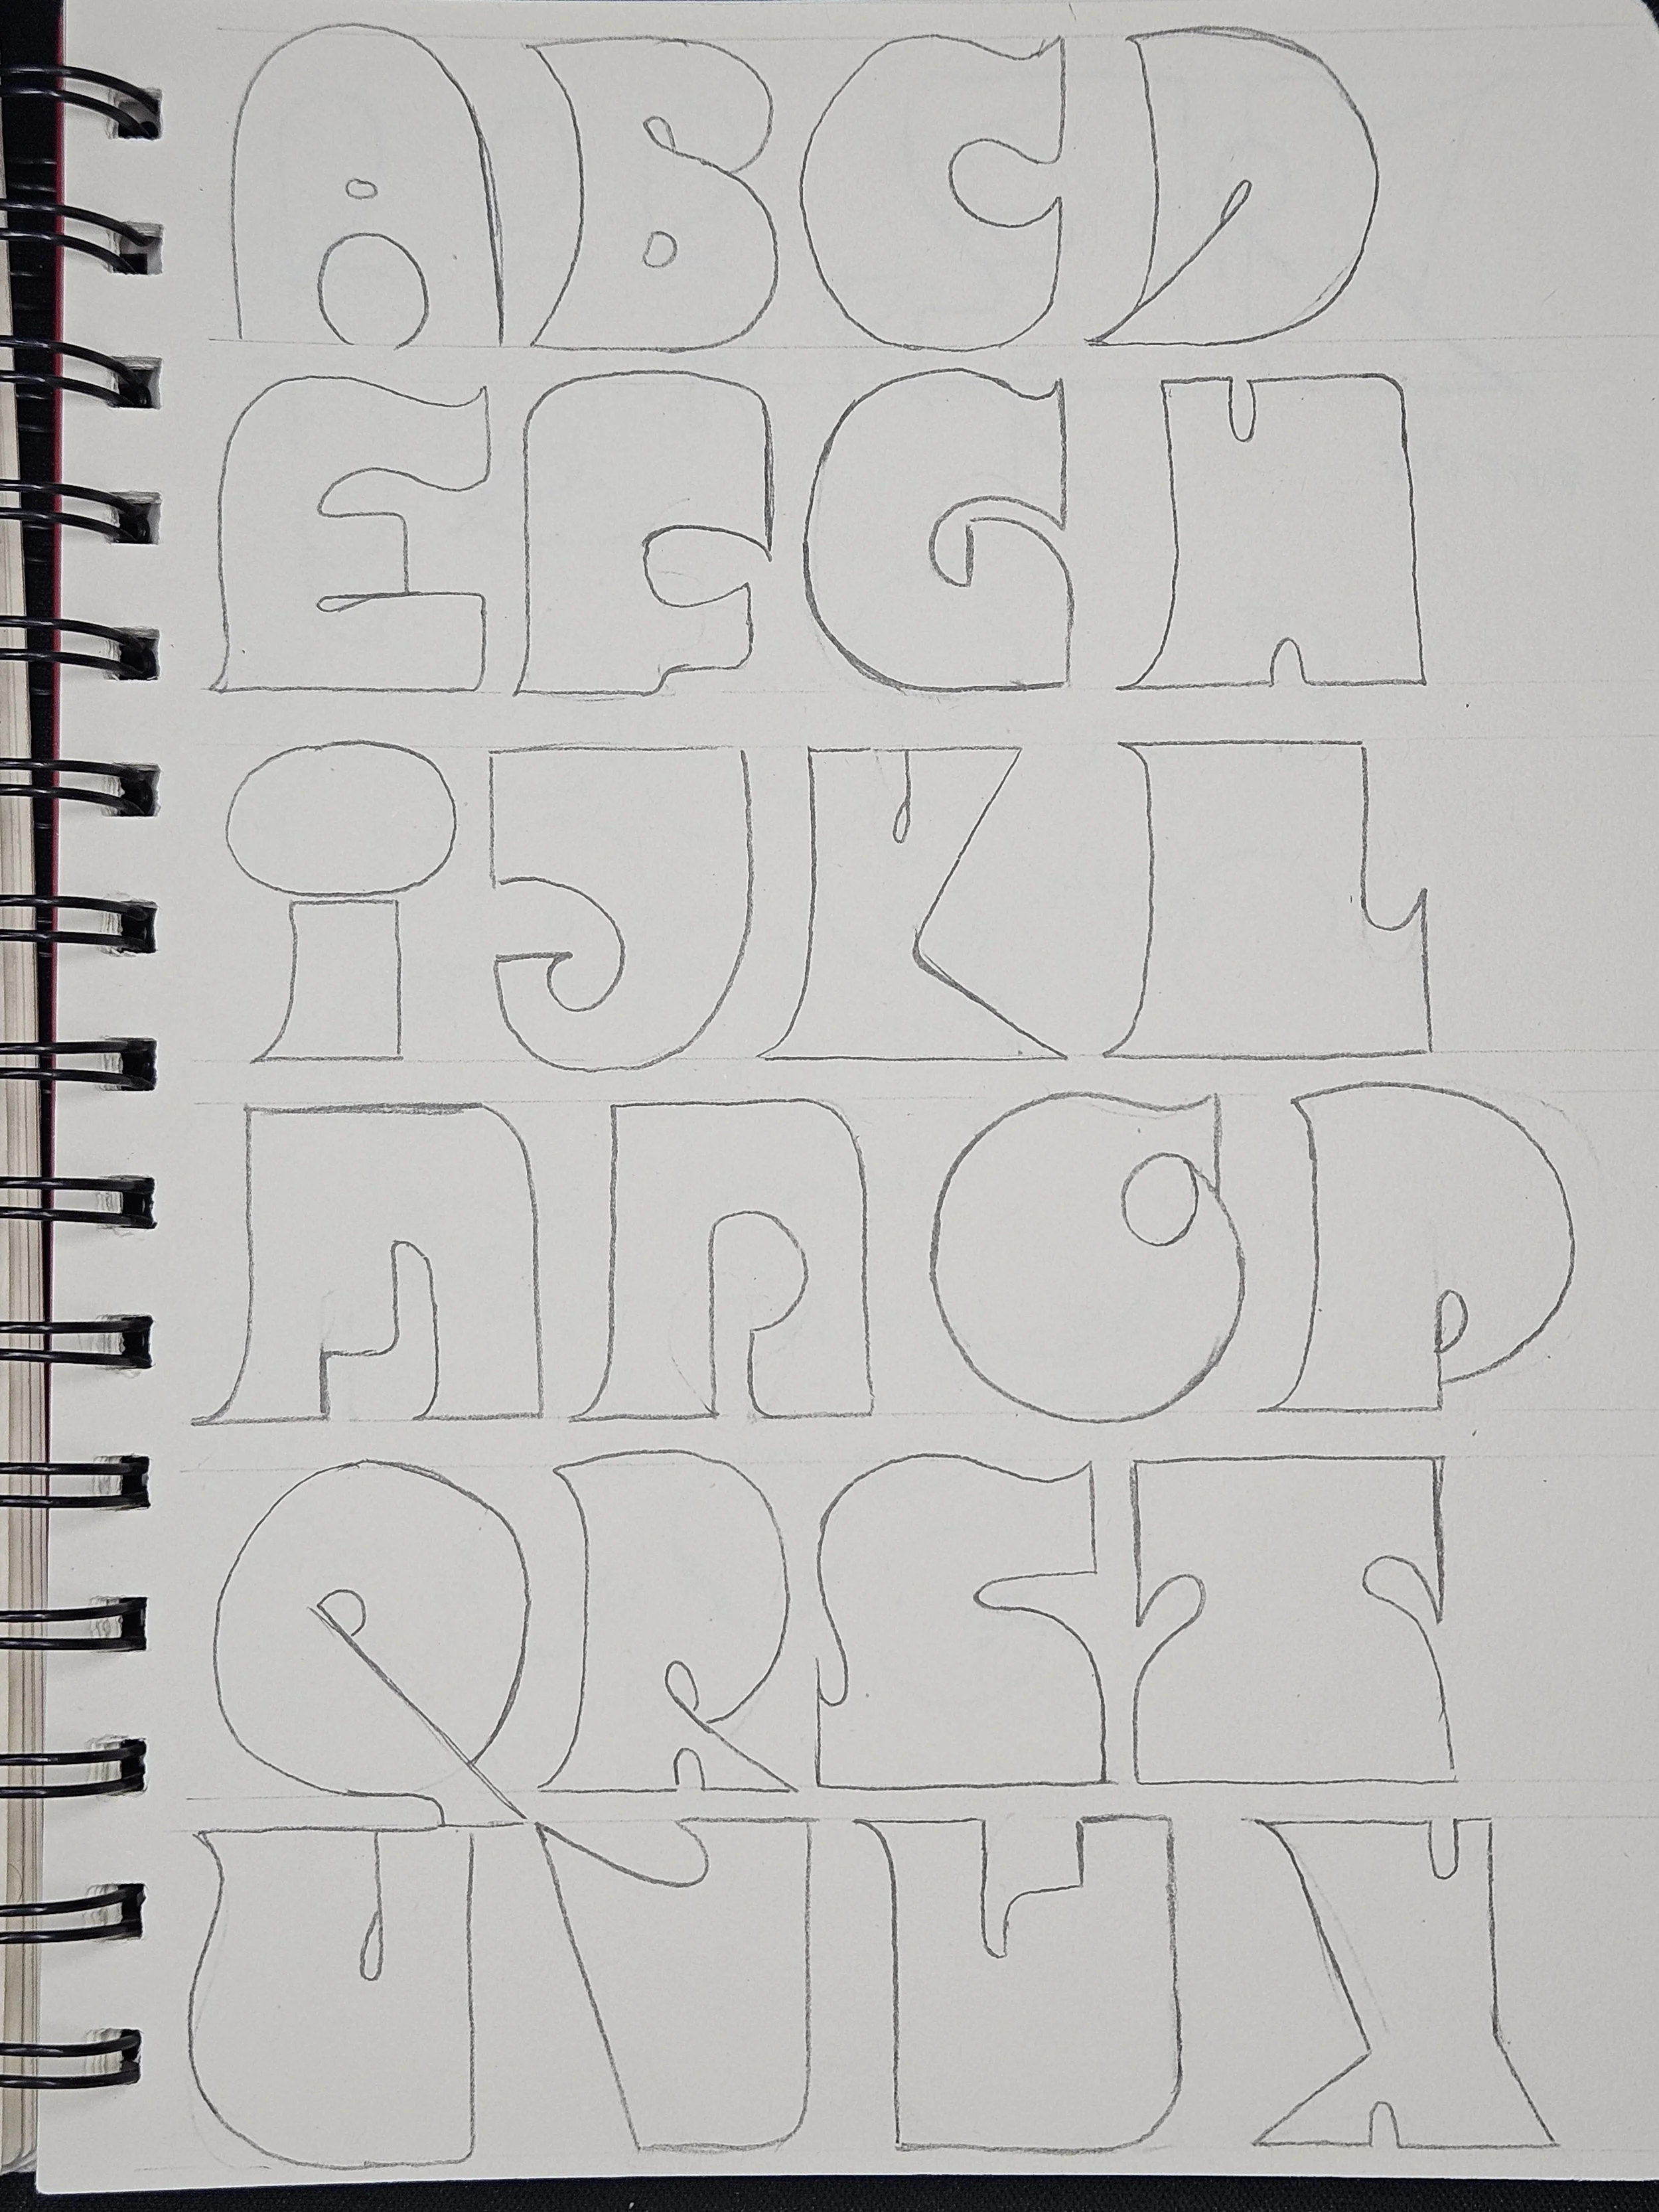 ABCD
EFGH
iJKL
MNOP
QRST
UVWX